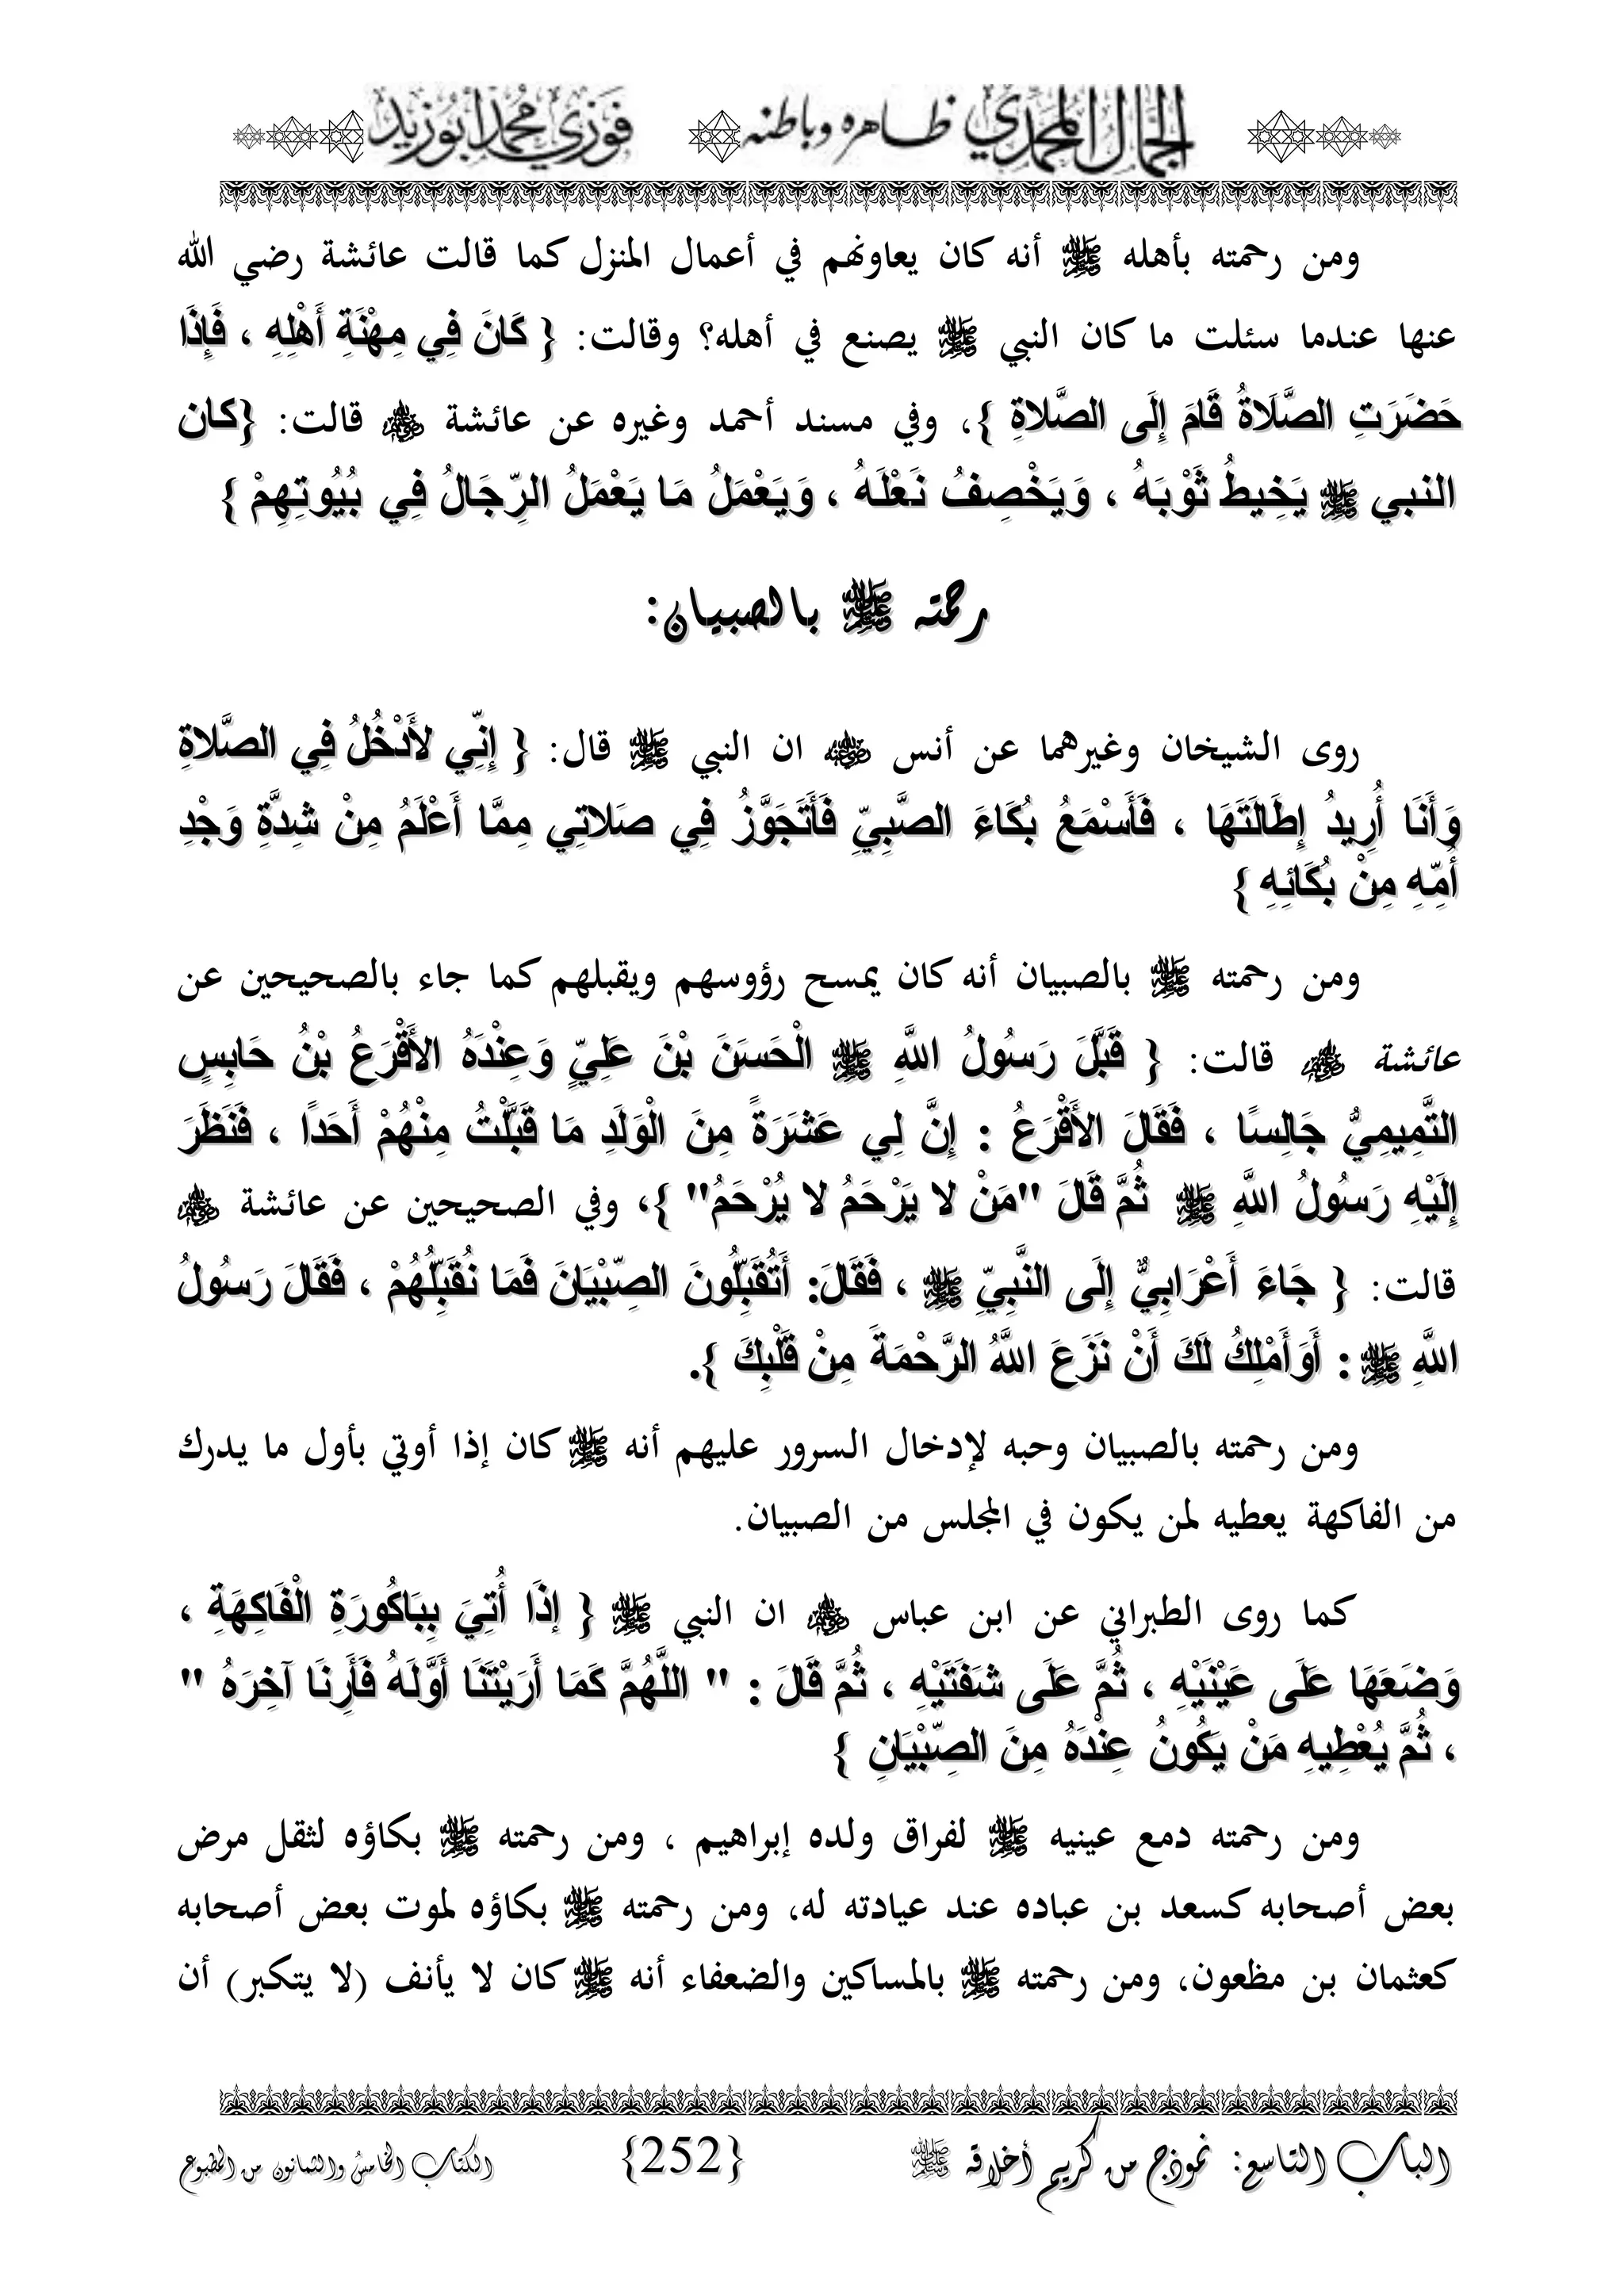 الجمال المحمدي ظاهره وباطنه فوزي محمد أبوزيد
ومن رحمته بأهله ﷺ أنه كان يعاونهم في أعمال المنزل كما قالت عائشة رضي الله
عنها عندما سئلت ما كان النبي ﷺ يصنع في أهله؟ وقالت: { كَانَ فِي مِهْنَةِ أَهْلِهِ ، فَإِذَا
حَضَرَتِ الصَّلَاةُ قَامَ إِلَى الصَّلاةِ }، وفي مسند أحمد وغيره عن عائشة قالت: {كان
النبي ﷺ يَخِيطُ ثَوْبَهُ ، وَيَخْصِفُ نَعْلَهُ ، وَيَعْمَلُ مَا يَعْمَلُ الرِّجَالُ فِي بُيُوتِهِمْ }
رحمته ﷺ بالصبيان:
روى الشيخان وغيرهما عن أنس ان النبي ﷺ قال: { إِنِّي لأَدْخُلُ فِي الصَّلاةِ
وَأَنَا أُرِيدُ إِطَالَتَهَا ، فَأَسْمَعُ بُكَاءَ الصَّبِيِّ فَأَتَجَوَّزُ فِي صَلاتِي مِمَّا أَعْلَمُ مِنْ شِدَّةِ وَجْدِ
أُمِّهِ مِنْ بُكَائِهِ }
ومن رحمته ﷺ بالصبيان أنه كان يمسح رؤوسهم ويقبلهم كما جاء بالصحيحين عن
عائشة قالت: { قَبَّلَ رَسُولُ اللَّهِ ﷺ الْحَسَنَ بْنَ عَلِيٍّ وَعِنْدَهُ الأَقْرَعُ بْنُ حَابِسٍ
التَّمِيمِيُّ جَالِسًا ، فَقَالَ الأَقْرَعُ : إِنَّ لِي عَشَرَةً مِنَ الْوَلَدِ مَا قَبَّلْتُ مِنْهُمْ أَحَدًا ، فَنَظَرَ
إِلَيْهِ رَسُولُ اللَّهِ ﷺ ثُمَّ قَالَ "مَنْ لا يَرْحَمُ لا يُرْحَمُ" }، وفي الصحيحين عن عائشة
قالت: { جَاءَ أَعْرَابِيٌّ إِلَى النَّبِيِّ ﷺ ، فَقَالَ: أَتُقَبِّلُونَ الصِّبْيَانَ فَمَا نُقَبِّلُهُمْ ، فَقَالَ رَسُولُ
اللَّهِ ﷺ : أَوَأَمْلِكُ لَكَ أَنْ نَزَعَ اللَّهُ الرَّحْمَةَ مِنْ قَلْبِكَ }.
ومن رحمته بالصبيان وحبه لإدخال السرور عليهم أنه ﷺ كان إذا أوتي بأول ما يدرك
من الفاكهة يعطيه لمن يكون في المجلس من الصبيان.
كما روى الطبراني عن ابن عباس ان النبي ﷺ { إِذَا أُتِيَ بِبَاكُورَةِ الْفَاكِهَةِ ،
وَضَعَهَا عَلَى عَيْنَيْهِ ، ثُمَّ عَلَى شَفَتَيْهِ ، ثُمَّ قَالَ : " اللَّهُمَّ كَمَا أَرَيْتَنَا أَوَّلَهُ فَأَرِنَا آخِرَهُ "
، ثُمَّ يُعْطِيهِ مَنْ يَكُونُ عِنْدَهُ مِنَ الصِّبْيَانِ }
ومن رحمته دمع عينيه ﷺ لفراق ولده إبراهيم ، ومن رحمته ﷺ بكاؤه لثقل مرض
بعض أصحابه كسعد بن عباده عند عيادته له، ومن رحمته ﷺ بكاؤه لموت بعض أصحابه
كعثمان بن مظعون، ومن رحمته ﷺ بالمساكين والضعفاء أنه ﷺ كان لا يأنف (لا يتكبر) أن
الباب التاسع: نموذج من كريم أخلاقه ﷺ {252} الكتاب الخامس والثمانون من المطبوع